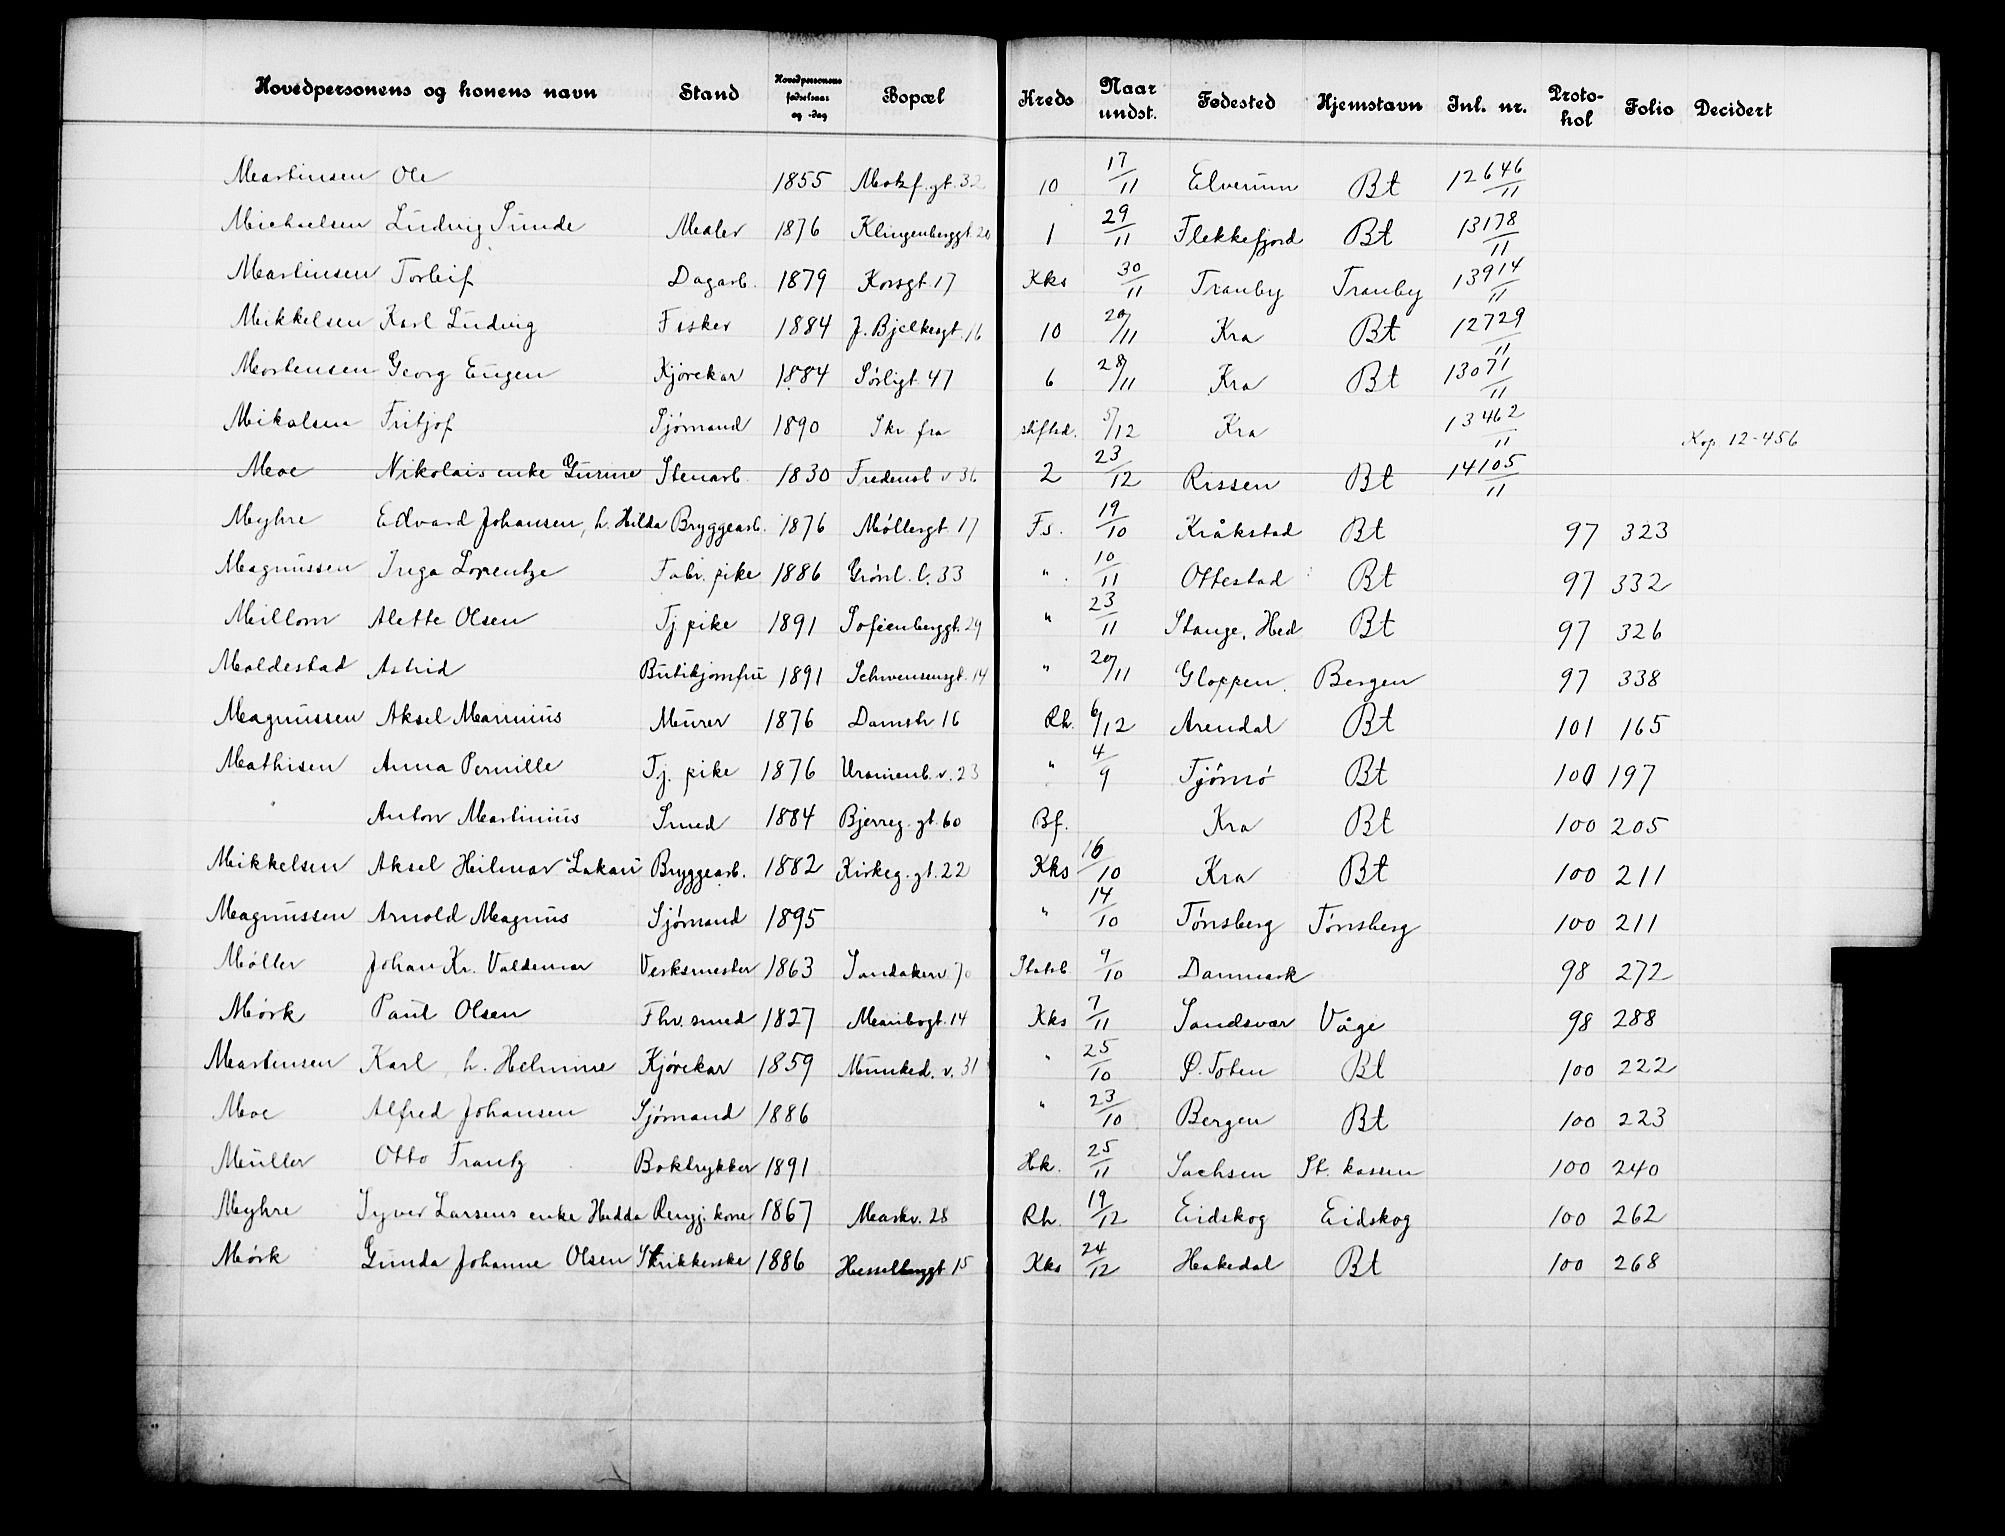 Hovedpersonens og konens navn Stand Hovedpersonens fødselsaar og -dag Bopæl Kreds Naar undst. Fødested Hjemstavn Inl. nr. Proto-kol Folio Decidert
Martinsen Ole 1855 Motzf. gt. 32 10 17/11 Elverum Bt 12646/11
Michaelsen Ludvig Sunde Maler 1876 Klingenberggt 20 1 29/11 Flekkefjord Bt 13178/11
Martinsen Torleif Dagarb. 1879 Korsgt. 17 Kks 30/11 Tranby Tranby 13914/11
Mikkelsen Karl Ludvig Fisker 1884 J. Bjelkesgt. 16 10 20/11 Kra Bt 12729/11
Mortensen Georg Eugen Kjørekar 1884 Sørligt. 47 6 28/11 Kra Bt 13071/11
Mikalsen Fritjof Sjømand 1890 Skr fra skifted. 5/12 Kra 13462/11 Kop 12-456
Moe Nikolais enke Gurine Stenarb. 1830 Fredensb. v 36 2 23/12 Rissen Bt 14105/11
Myhre Edvard Johansen, h. Hilda Bryggearb. 1876 Møllergt 17 Fs. 19/10 Kråkstad Bt 97 323
Magnussen Inga Lorentze Fabr. pike 1886 Grønl. l. 33 " 10/11 Ottestad Bt 97 332
Millom Alette Olsen Tj pike 1891 Sofienberggt. 29 " 23/11 Stange, Hed Bt 97 326
Moldestad Astrid Butikjomfru 1891 Schwensensgt. 14 " 20/11 Gloppen. Bergen 97 338
Magnussen Aksel Marinius Murer 1876 Damstr 16 Rh. 6/12 Arendal Bt 101 165
Mathisen Anna Pernille Tj. pike 1876 Uranienb. v. 23 " 4/9 Tjømø Bt 100 197
" Anton Martinius Smed 1884 Bjerreg. gt. 60 Bf. Kra Bt 100 205
Mikkelsen Aksel Hilmar "Lakan" Bryggearb. 1882 Kirkeg. gt. 22 Kks 16/10 Kra Bt 100 211
Magnussen Arnold Magnus Sjømand 1895 " 14/10 Tønsberg Tønsberg 100 211
Møller Johan Kr. Valdemar Verksmester 1863 Sandakerv 70 Statsb 9/10 Danmark 98 272
Mørk Paul Olsen Fhv. smed 1827 Maribogt. 14 Kks 7/11 Sandsvær Våge 98 288
Martinsen Karl, h. Helmine Kjørekar 1859 Munked. v. 31 " 25/10 Ø. Toten Bt 100 222
Moe Alfred Johansen Sjømand 1886 " 23/10 Bergen Bt 100 223
Müller Otto Frantz Boktrykker 1891 Hk. 25/11 Sachsen St. kassen 100 240
Myhre Syver Larsens enke Hedda Rengj. kone 1867 Maskv. 28 Rh. 19/12 Eidskog Eidskog 100 262
Mørk Gunda Johanne Olsen Strikkerske 1886 Hesselberggt 15 Kks 24/12 Hakedal Bt 100 268